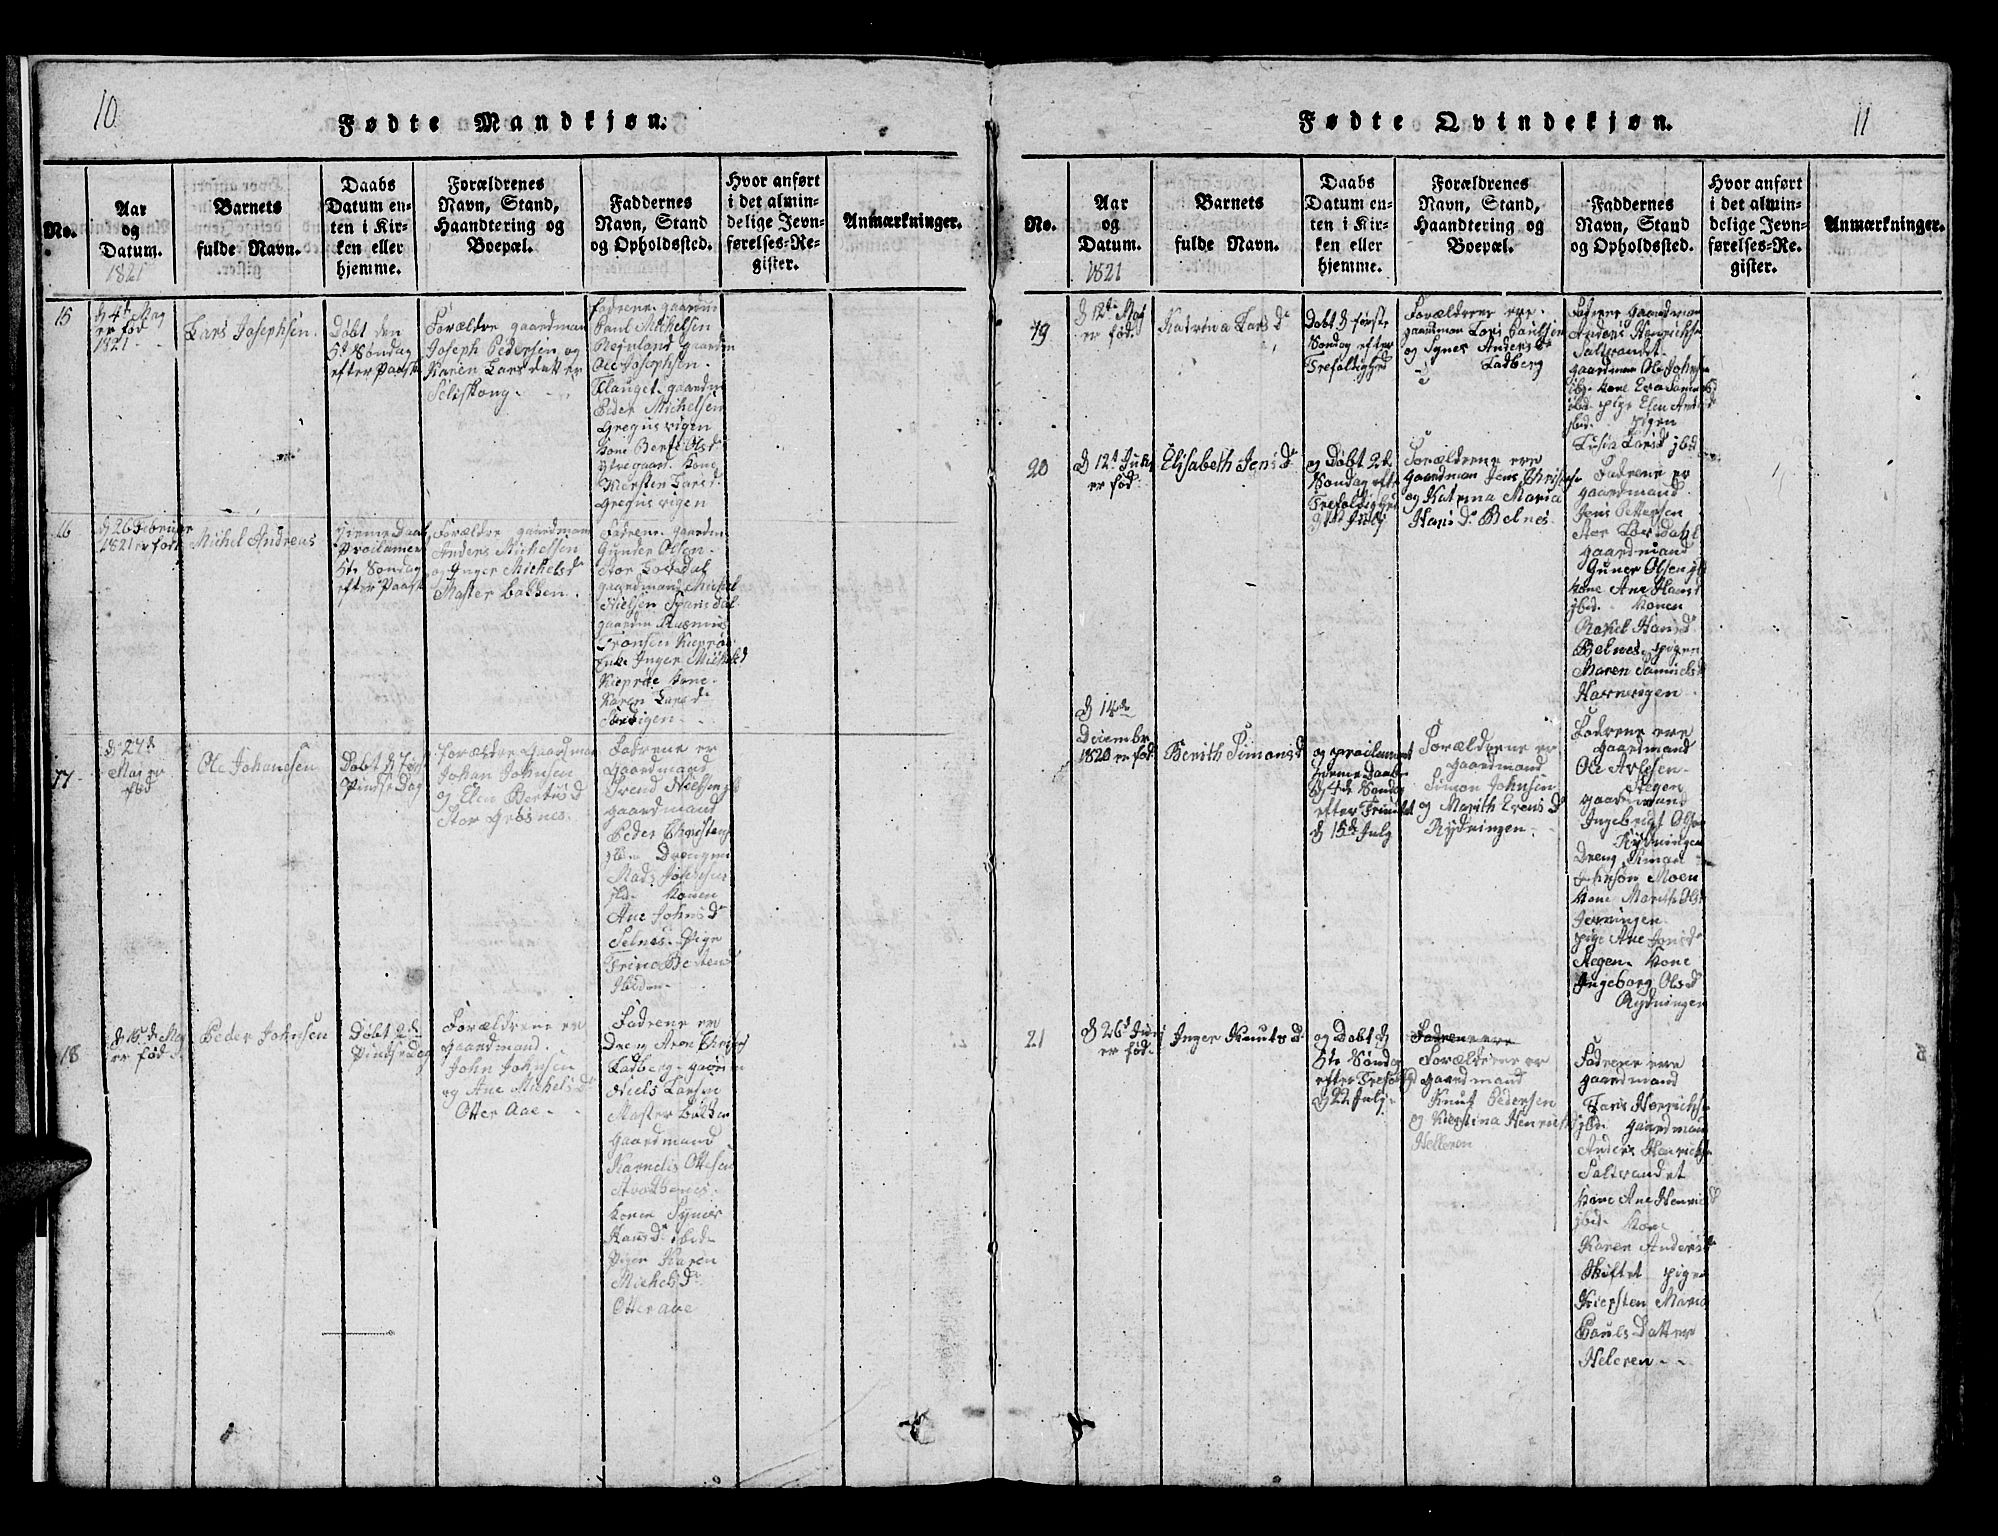 10
Fødte Mandkjøn.
No.
Aar
og
Datum.
1821
Barnets
fulde Navn.
Daabs
Datum en-
ten i Kir-
ken eller
hjemme.
Forældrenes
Navn, Stand,
Haandtering og
Boepæl.
Faddernes
Navn, Stand
og Opholdssted.
Hvor anført
i det almin-
delige Jevn-
førelses-Re-
gister.
Anmærkninger.
15
d 4de Maj
er fød
1821
Lars Josephsen
Døbt den
5te Søndag
efter Paaske
Forældre gaardman
Joseph Pedersen og
Karen Larsdatter
Seliskong
Fadrene gaardm
Paul Michelsen
gaarden
Ole Josephsen
gaardm
Peder Michelsen
Gregusvigen
kone Berte Olsd
ytregaard kone
Kiersten Larsd
Gregusvigen
16
d 26 Februar
1821 er fød
Michel Andreas
Hjemme Daab
Proclameret
5te Søndag
efter Paaske
Forældre gaardman
Anders Michelsen
og Inger Michelsd
Masterbakken
Fadrene gaardm
Gunder Olsen
Stor Lorsdal
gaardmand Michel
Nielsen Spansdal
gaardm Rasmus
Tronsen
Inger Michelsd
kone
Karen Larsd
17
d 27d
Maj er
fød
Ole Johansen
Døbt d 1ste
Pindse Dag
Forældre Gaardman
Johan Johnsen
og Elen Bertusd
Stor Grøsnes
Fadrene er
Gaardmand
Trend Nielsen
gaardmand
Peder Christens
Drengen
Mads Johnsen
ibd. konen
Ane Johnsd
Selnes Pige
Trine Bertens
Ibiden
18
d 16de Maj
er fød
Peder Johnsen
Døbt 2d
Pindsedag
Forældrene er
Gaardmand
John Johnsen
og Ane Michelsd
Otter Aae
Fadrene er
Dreng Aron Christ
Ladberg gaarden
Niels Larsen
Masterbakken
gaardmand
Karnelis Ottesen
konen Synev
Hansd ibid
Pigen Karen
Michelsd
Otteraae
11
Fødte Qvindekjøn.
No.
Aar
og
Datum.
1821
Barnets
fulde Navn.
Daabs
Datum en-
ten i Kir-
ken eller
hjemme.
Forældrenes
Navn, Stand,
Haandtering og
Boepæl.
Faddernes
Navn, Stand
og Opholdssted.
Hvor anført
i det almin-
delige Jevn-
førelses-Re-
gister.
Anmærkninger.
19
d 12te Maj
er fød
Katrina Lars d
Døbt d første
Søndag efter
Trefoldighed
Forældrene ere
gaardman Lars Paulsen
og Synev Anders d
Ladberg
Fadrene gaardman
Anders Henrichsen
Saltvandet
gaardman Ole Johnsen
kone Eva
ibd. pige Elen Andersd
ibd. pigen
Larsd ibd
20
d 12d July
er fød
Elisabeth Jens d
og Døbt 2d
Søndag efter
Trefoldighed
July
Forældrene ere
Gaardman Jens Christens
og Katrina Maria
Hans d Belnes
Fadrene er
gaardmand
Jens Pettersen
Stor Lorsdahl
gaardmand
Guner Olsen
kone Ane Hansd
ibid. konen
Rakel Hansd
Belnes pigen
Maren Samuelsd
Havnevigen
d 14de
Decembr
1820 er fød
Berith Simonsd
og proclameret
hjemme Daab
d 4de Søndag
efter Trinitet
d 15de July
Forældrene er
gaardmand
Simon Johnsen
og Marith Evensd
Rydningen
Fadrene ere
gaardmand
Ole Arlesen
Stegen
gaardmand
Ingebrigt Olsen
Rydningen
Dreng Simon
Johnson Moen
kone Marith Olsd
pige Ane Jonsd
Stegen kone
Ingeborg Olsd
Rydningen
21
d 26d Juni
er fød
Inger Knuts d
og Døbt d
5te Søndag
efter Trefold
d 22 July
Fadrene ere
Forældrene er
gaardmand
Knut Pedersen
og Kierstina Henrichsd
Helleren
Fadrene ere
gaardmand
Lars Henrichsen
ibd. gaardman
Anders Henrichsen
Saltvandet
kone Ane Henrichsd
ibid. kone
Karen Andersd
Skiftet pigen
Kiersten Maria
Pauls Datter
Heleren